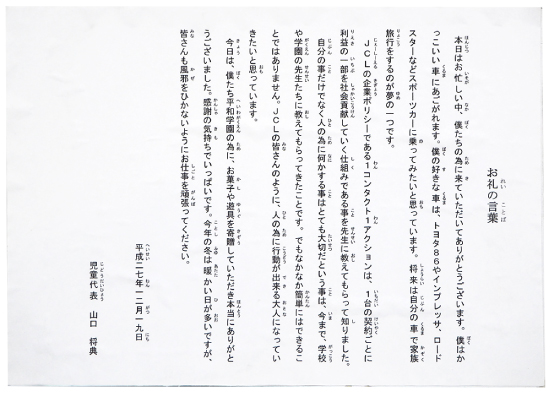 お礼の言葉
本日はお忙しい中、僕たちの為に来ていただいてありがとうございます。僕はか
っこいい車にあこがれます。僕の好きな車は、トヨタ86やインプレッサ、ロード
スターなどスポーツカーに乗ってみたいと思っています。将来は自分の車で家族
旅行をするのが夢の一つです。
JCLの企業ポリシーである1コンタクト1アクションは、1台の契約ごとに
利益の一部を社会貢献していく仕組みである事を先生に教えてもらって知りました。
自分の事だけでなく人の為に何かする事はとても大切だという事は、今まで、学校
や学園の先生たちに教えてもらってきたことです。でもなかなか簡単にはできるこ
とではありません。JCLの皆さんのように、人の為に行動が出来る大人になってい
きたいと思っています。
今日は、僕たち平和学園の為に、お菓子や遊具を寄贈していただき本当にありがと
うございました。感謝の気持ちでいっぱいです。今年の冬は暖かい日が多いですが、
皆さんも風邪をひかないようにお仕事を頑張ってください。
平成二七年一二月一九日
児童代表 山口 将典